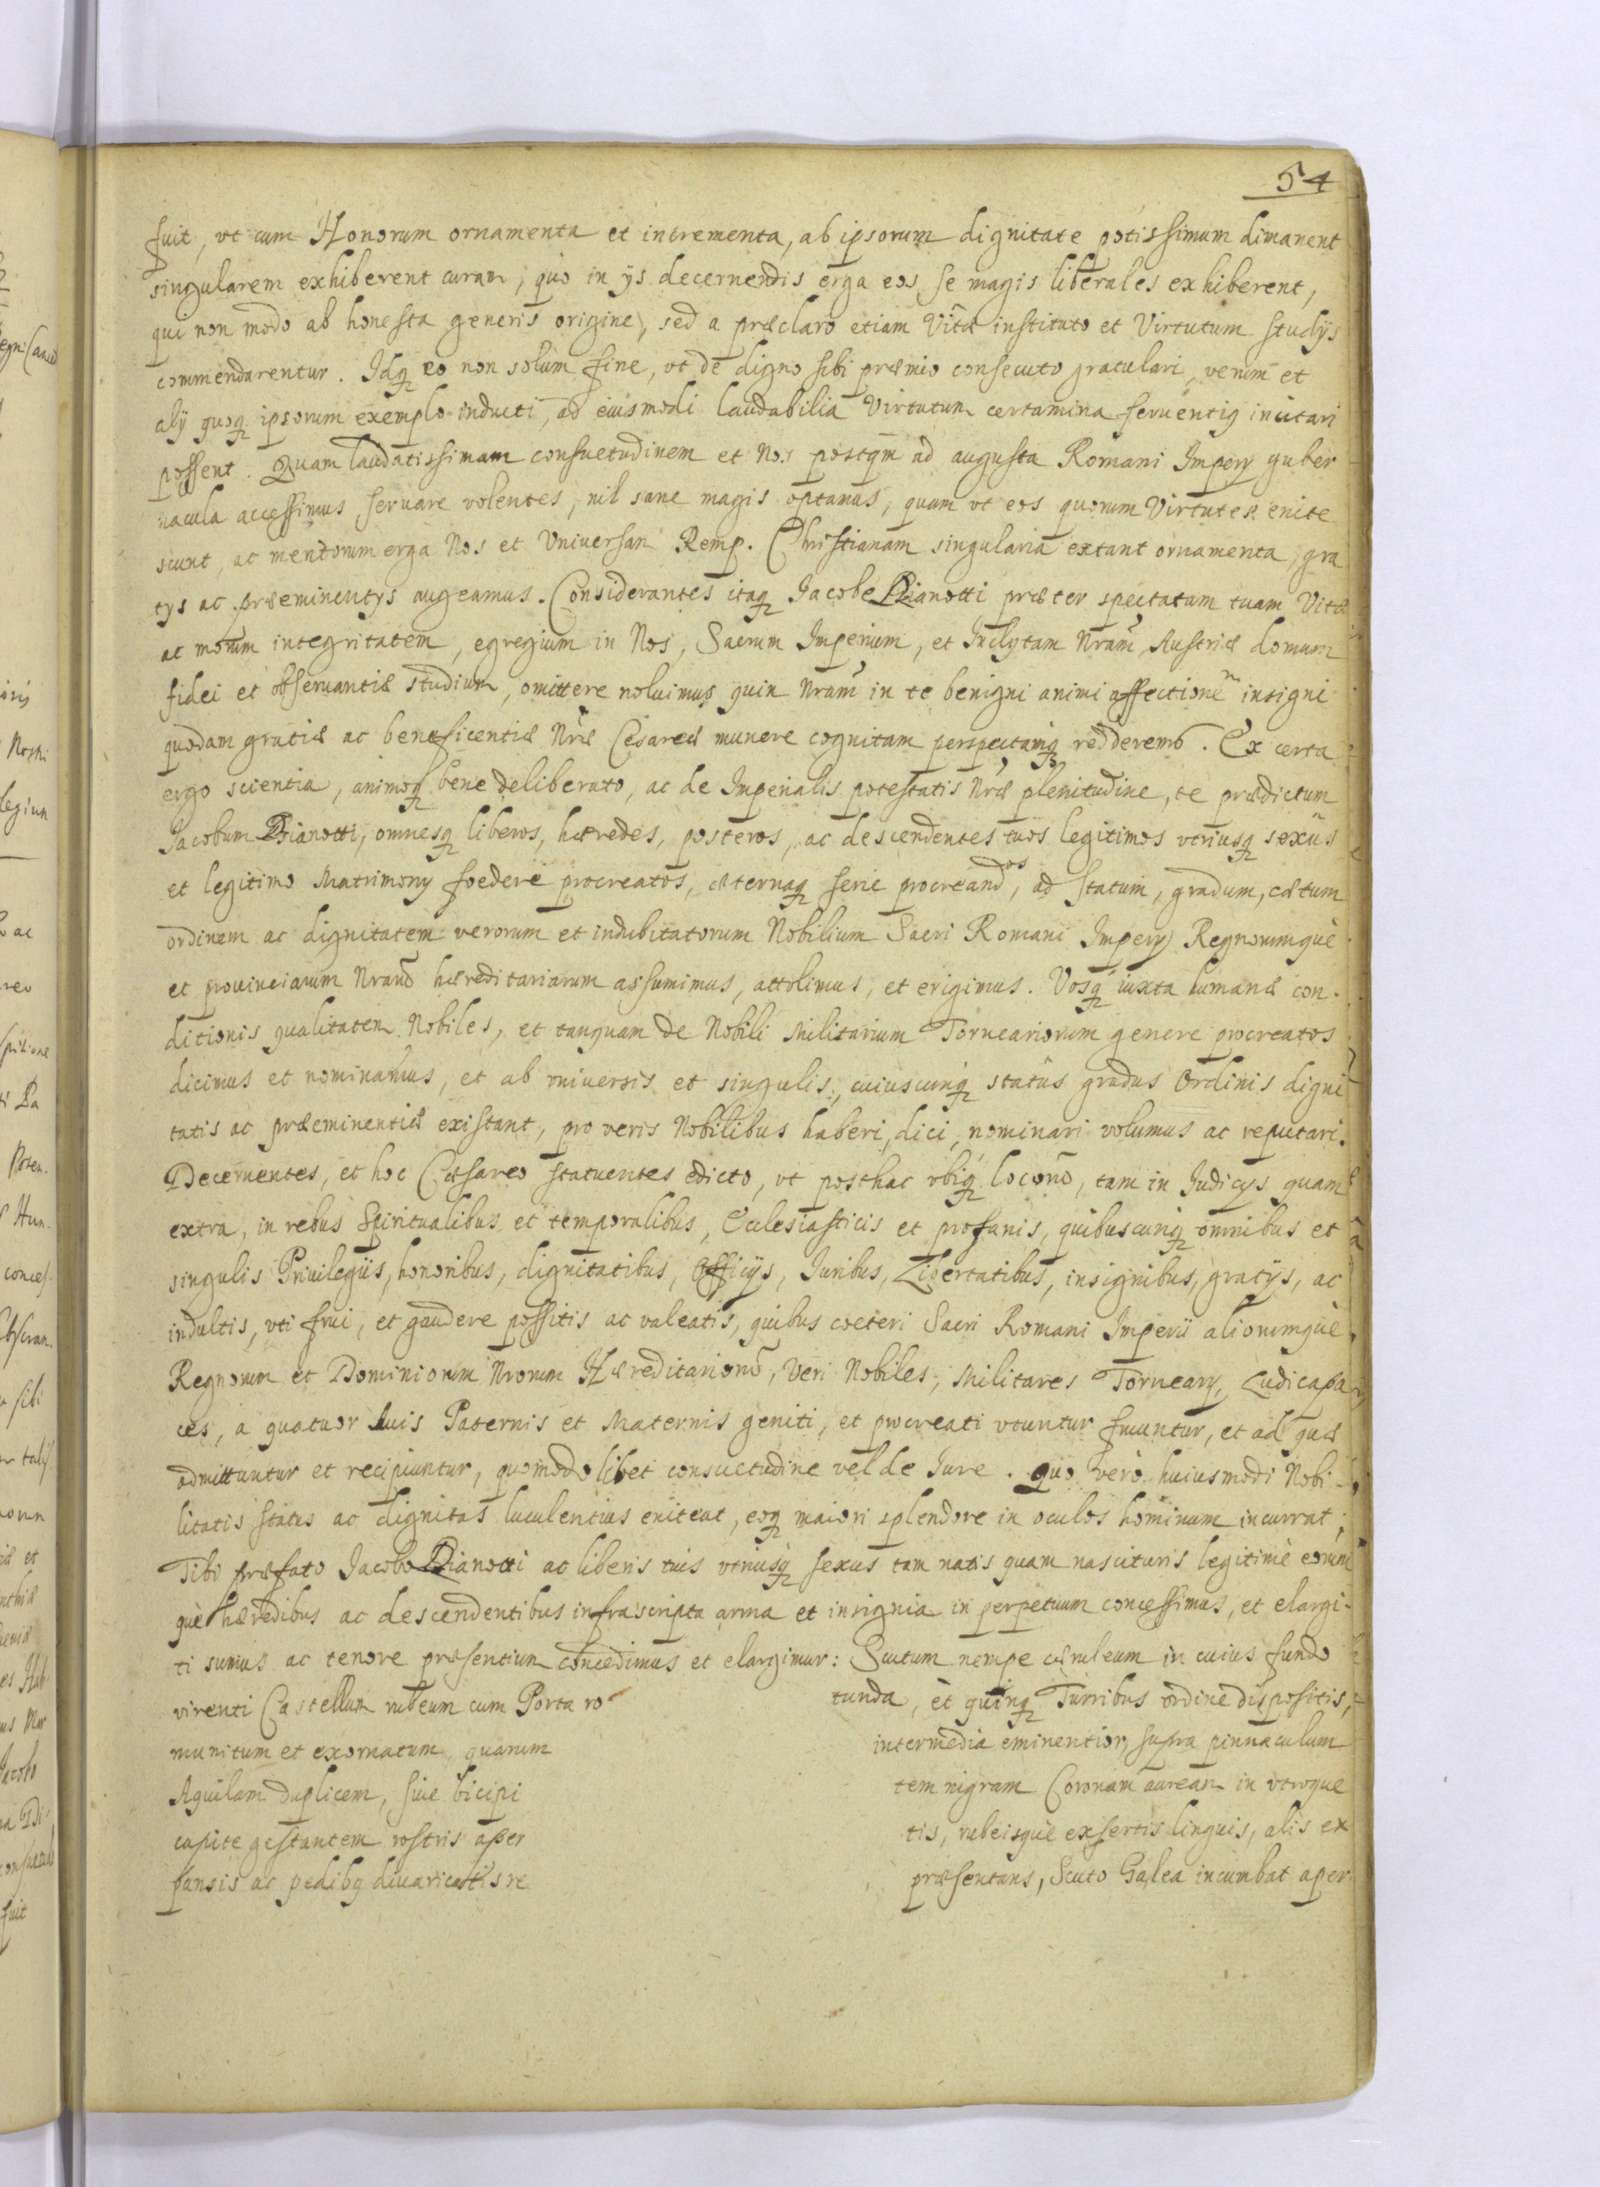 54
fuit, vt cum Honorum ornamenta et incrementa, ab ipsorum dignitate potissimum dimanent
singularem exhiberent curam, quo in ijs decernendis erga eos se magis liberales exhiberent,
qui non modo ab honesta generis origine, sed a præclaro etiam Vitæ instituto et Virtutum studijs
commendarentur. Idq₃ eo non solum fine, vt de digno sibi præmio consecuto gratulari, verum et
alij quoq₃ ipsorum exemplo inducti, ad eiusmodi laudabilia Virtutum certamina feruentig incitari
possent. Quam laudatissimam consuetudinem et Nos postqm̄ ad augusta Romani Impery guber
nacula accessimus seruare volentes, nil sane magis optamus, quam vt eos quorum Virtutes enite
scunt, ac meritorum erga Nos et Vniuersam Remp. Christianam singularia extant ornamenta, gra
tys ac præeminentys augeamus. Considerantes itaq₃ Jacobe Dianotti præter spectatam tuam Vitæ
ac morum integritatem, egregium in Nos, Sacrum Imperium, et Inclytam Nram̄ Austriæ domum
fidei et obseruantiæ studium, omittere noluimus quin Nram̄ in te benigni animi affectionem insigni
quodam gratiæ ac beneficentiæ Nrǣ Cesareæ munere cognitam perspectamq₃ redderemɔ. Ex certa
ergo scientia, animoq₃ bene deliberato, ac de Imperialis potestatis Nrǣ plenitudine, te prædictum
Jacobum Dianotti, omnesq₃ liberos, hæredes, posteros, ac descendentes tuos legitimos vtriusq₃ sexus
et legitimo Matrimony foedere procreatos, æternaq₃ serie procreandos, ad statum, gradum, cætum
ordinem ac dignitatem verorum et indubitatorum Nobilium Sacri Romani Impery Regnorumquè
et prouinciarum Nrarū hæreditariarum assumimus, attolimus, et erigimus. Vosq₃ iuxta humanæ con-
ditionis qualitatem Nobiles, et tanquam de Nobili Militarium Torneariorum genere procreatos
dicimus et nominamus, et ab vniuersis et singulis, cuiuscunq₃ status gradus Ordinis digni
tatis ac præeminentiæ existant, pro veris Nobilibus haberi, dici, nominari volumus ac reputari.
Decernentes, et hoc Cæsareo statuentes edicto, vt posthac vbiq₃ locorū, tam in Judicijs quam
extra, in rebus Spiritualibus et temporalibus, Ecclesiasticis et profanis, quibuscunq₃ omnibus et
singulis Priuilegijs, honoribus, dignitatibus, Officijs, Juribus, Libertatibus, insignibus, gratijs, ac
indultis, vti frui, et gaudere possitis ac valeatis, quibus coeteri Sacri Romani Imperii aliorumquè
Regnorum et Dominiorum Nrorum Hæreditariorū, Veri Nobiles, Militares Torneary, Ludicapa
ces, a quatuor Auis Paternis et Maternis geniti, et procreati vtuntur fruuntur, et ad quæ
admittuntur et recipiuntur, quomodolibet consuetudine vel de Jure. Quo verò huiusmodi Nobi-
litatis status ac dignitas luculentius eniteat, eoq₃ maiori splendore in oculos hominum incurrat;
Tibi præfato Jacobo Dianotti ac liberis tuis vtriusq₃ sexus tam natis quam nascituris legitimè eorum
què hæredibus ac descendentibus infrascripta arma et insignia in perpetuum concessimus, et elargi-
ti sumus ac tenore præsentium concedimus et elargimur: Scutum nempe cæruleum in cuius fundo
virenti Castellum rubeum cum Porta ro tunda, et quinq₃ Turribus ordine dispositis,
munitum et exornatum, quarum intermedia eminentior, supra pinnaculum
Aquilam duplicem, siue bicipi tem nigram Coronam auream in vtroque
capite gestantem rostris aper tis, rubeisquè exsertis linguis, alis ex
pansis ac pedibg diuaricatis re præsentans, Scuto Galea incumbat aper